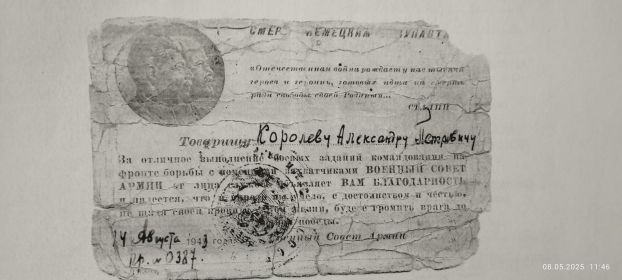 СМЕР НЕМЕЦКИМ
«Отечественная война рождает у нас тысячи
героев и героинь, готовых идти на смерть
ради свободы своей Родины...
СТАЛИН
Товарищу Королеву Александру Петровичу
За отличное выполнение боевых заданий командования на
фронте борьбы с захватчиками ВОЕННЫЙ СОВЕТ
АРМИИ от лица ВАМ БЛАГОДАРНОСТЬ
и надеется, что с достоинством и честью,
не щадя своей жизни, громить врага до
победы.
Августа 194 года Военный Совет Армии
Пр. № 0387.
08.05.2025 11:46